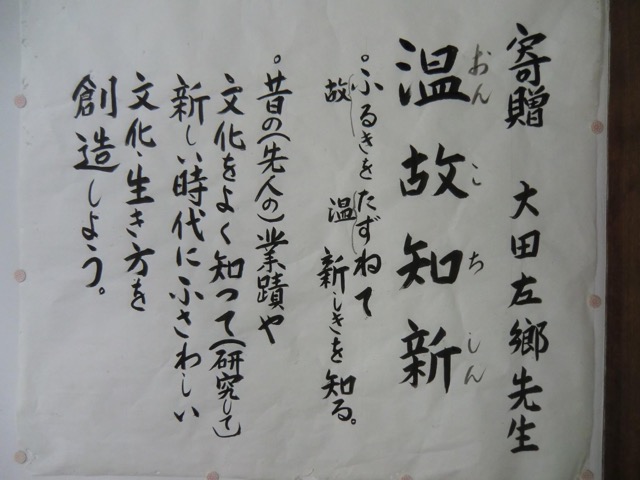 寄贈 大田左郷先生
温故知新
おんこちしん
。ふるきをたずねて新しきを知る。
故 温
。昔の(先人の)業蹟や
文化をよく知って(研究して)
新しい時代にふさわしい
文化、生き方を
創造しよう。